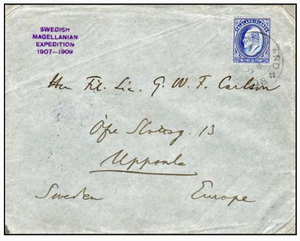 SWEDISH
MAGELLANIAN
EXPEDITION
1907-1909
FALKLAND ISLANDS
Herr Fil. Lic. G. W. F. Carlson
Öfre Slottsg. 13
Uppsala
Sweden Europe